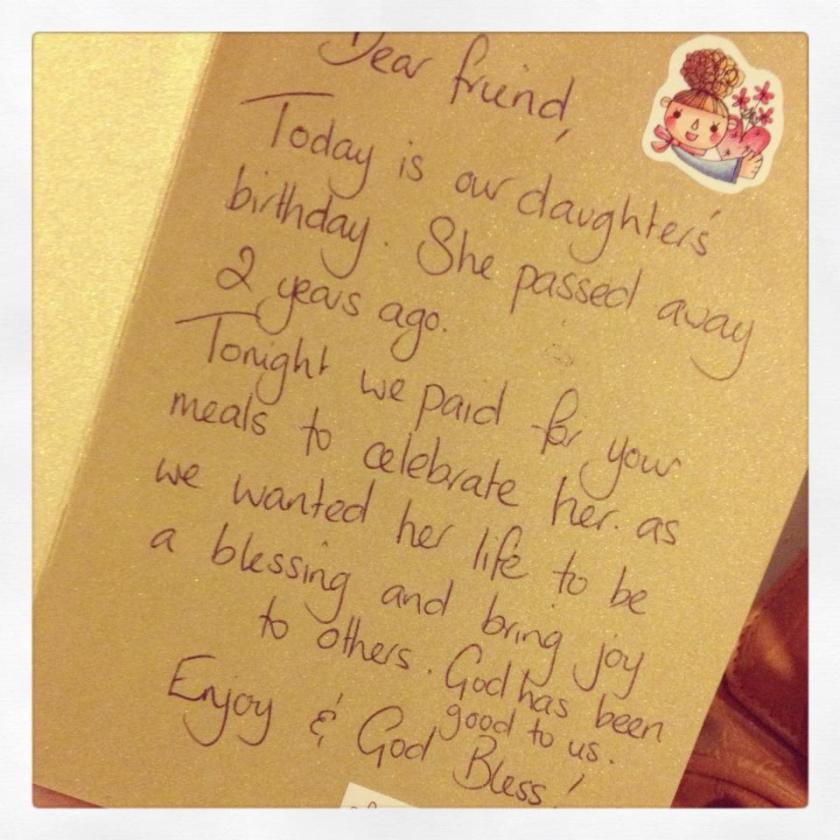 Dear friend,
Today is our daughters'
birthday. She passed away
2 years ago.
Tonight we paid for your
meals to celebrate her. as
we wanted her life to be
a blessing and bring joy
to others. God has been
good to us.
Enjoy & God Bless!